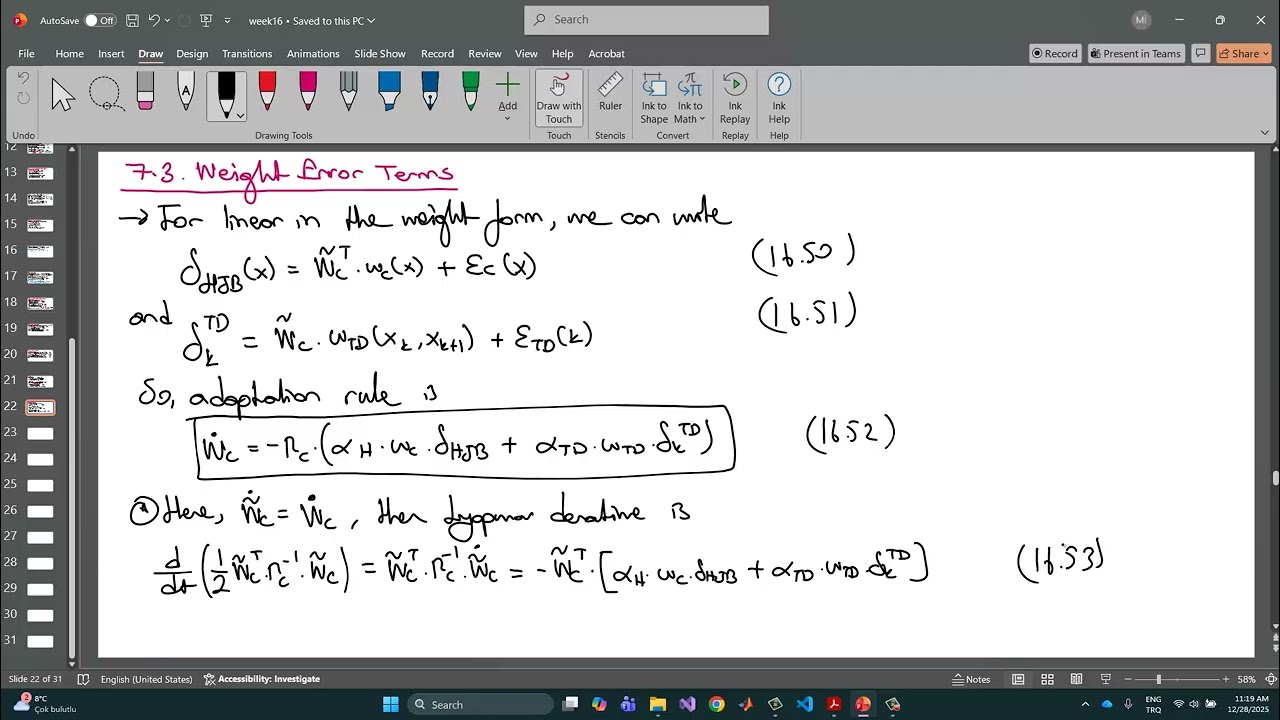 AutoSave Off week16 • Saved to this PC Search Mi
File Home Insert Draw Design Transitions Animations Slide Show Record Review View Help Acrobat Record Present in Teams Share
Add Draw with Touch Ruler Ink to Shape Ink to Math Ink Replay Ink Help
Undo Drawing Tools Touch Stencils Convert Replay Help
12
13
14
15
16
17
18
19
20
21
22
23
24
25
26
27
28
29
30
31
7.3. Weight Error Terms
→ For linear in the weight form, we can write
δ_HJB(x) = W̃_c^T · ω_c(x) + ε_c(x) (16.50)
and
δ_k^TD = W̃_c · ω_TD(x_k, x_k+1) + ε_TD(k) (16.51)
So, adaptation rule is
Ẇ_c = -Γ_c · (α_H · ω_c · δ_HJB + α_TD · ω_TD · δ_k^TD) (16.52)
Here, W̃̇_c = Ẇ_c, then Lyapunov derivative is
d/dt (1/2 W̃_c^T · Γ_c^-1 · W̃_c) = W̃_c^T · Γ_c^-1 · W̃̇_c = - W̃_c^T · [α_H · ω_c · δ_HJB + α_TD · ω_TD · δ_k^TD] (16.53)
Slide 22 of 31 English (United States) Accessibility: Investigate Notes 58%
2 8°C Çok bulutlu Search ENG TRQ 11:19 AM 12/28/2025